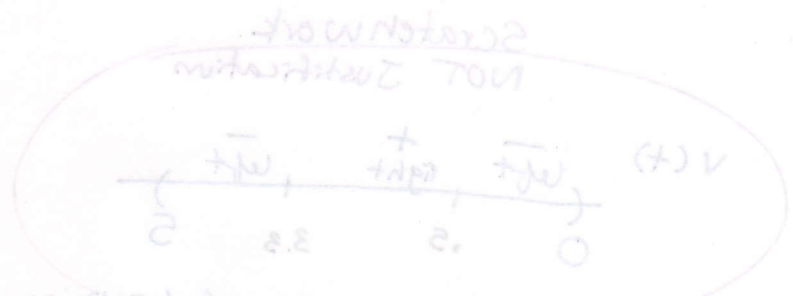 Scratchwork
NOT Justification
v(t)
− + −
left right left
0 .5 3.5 5